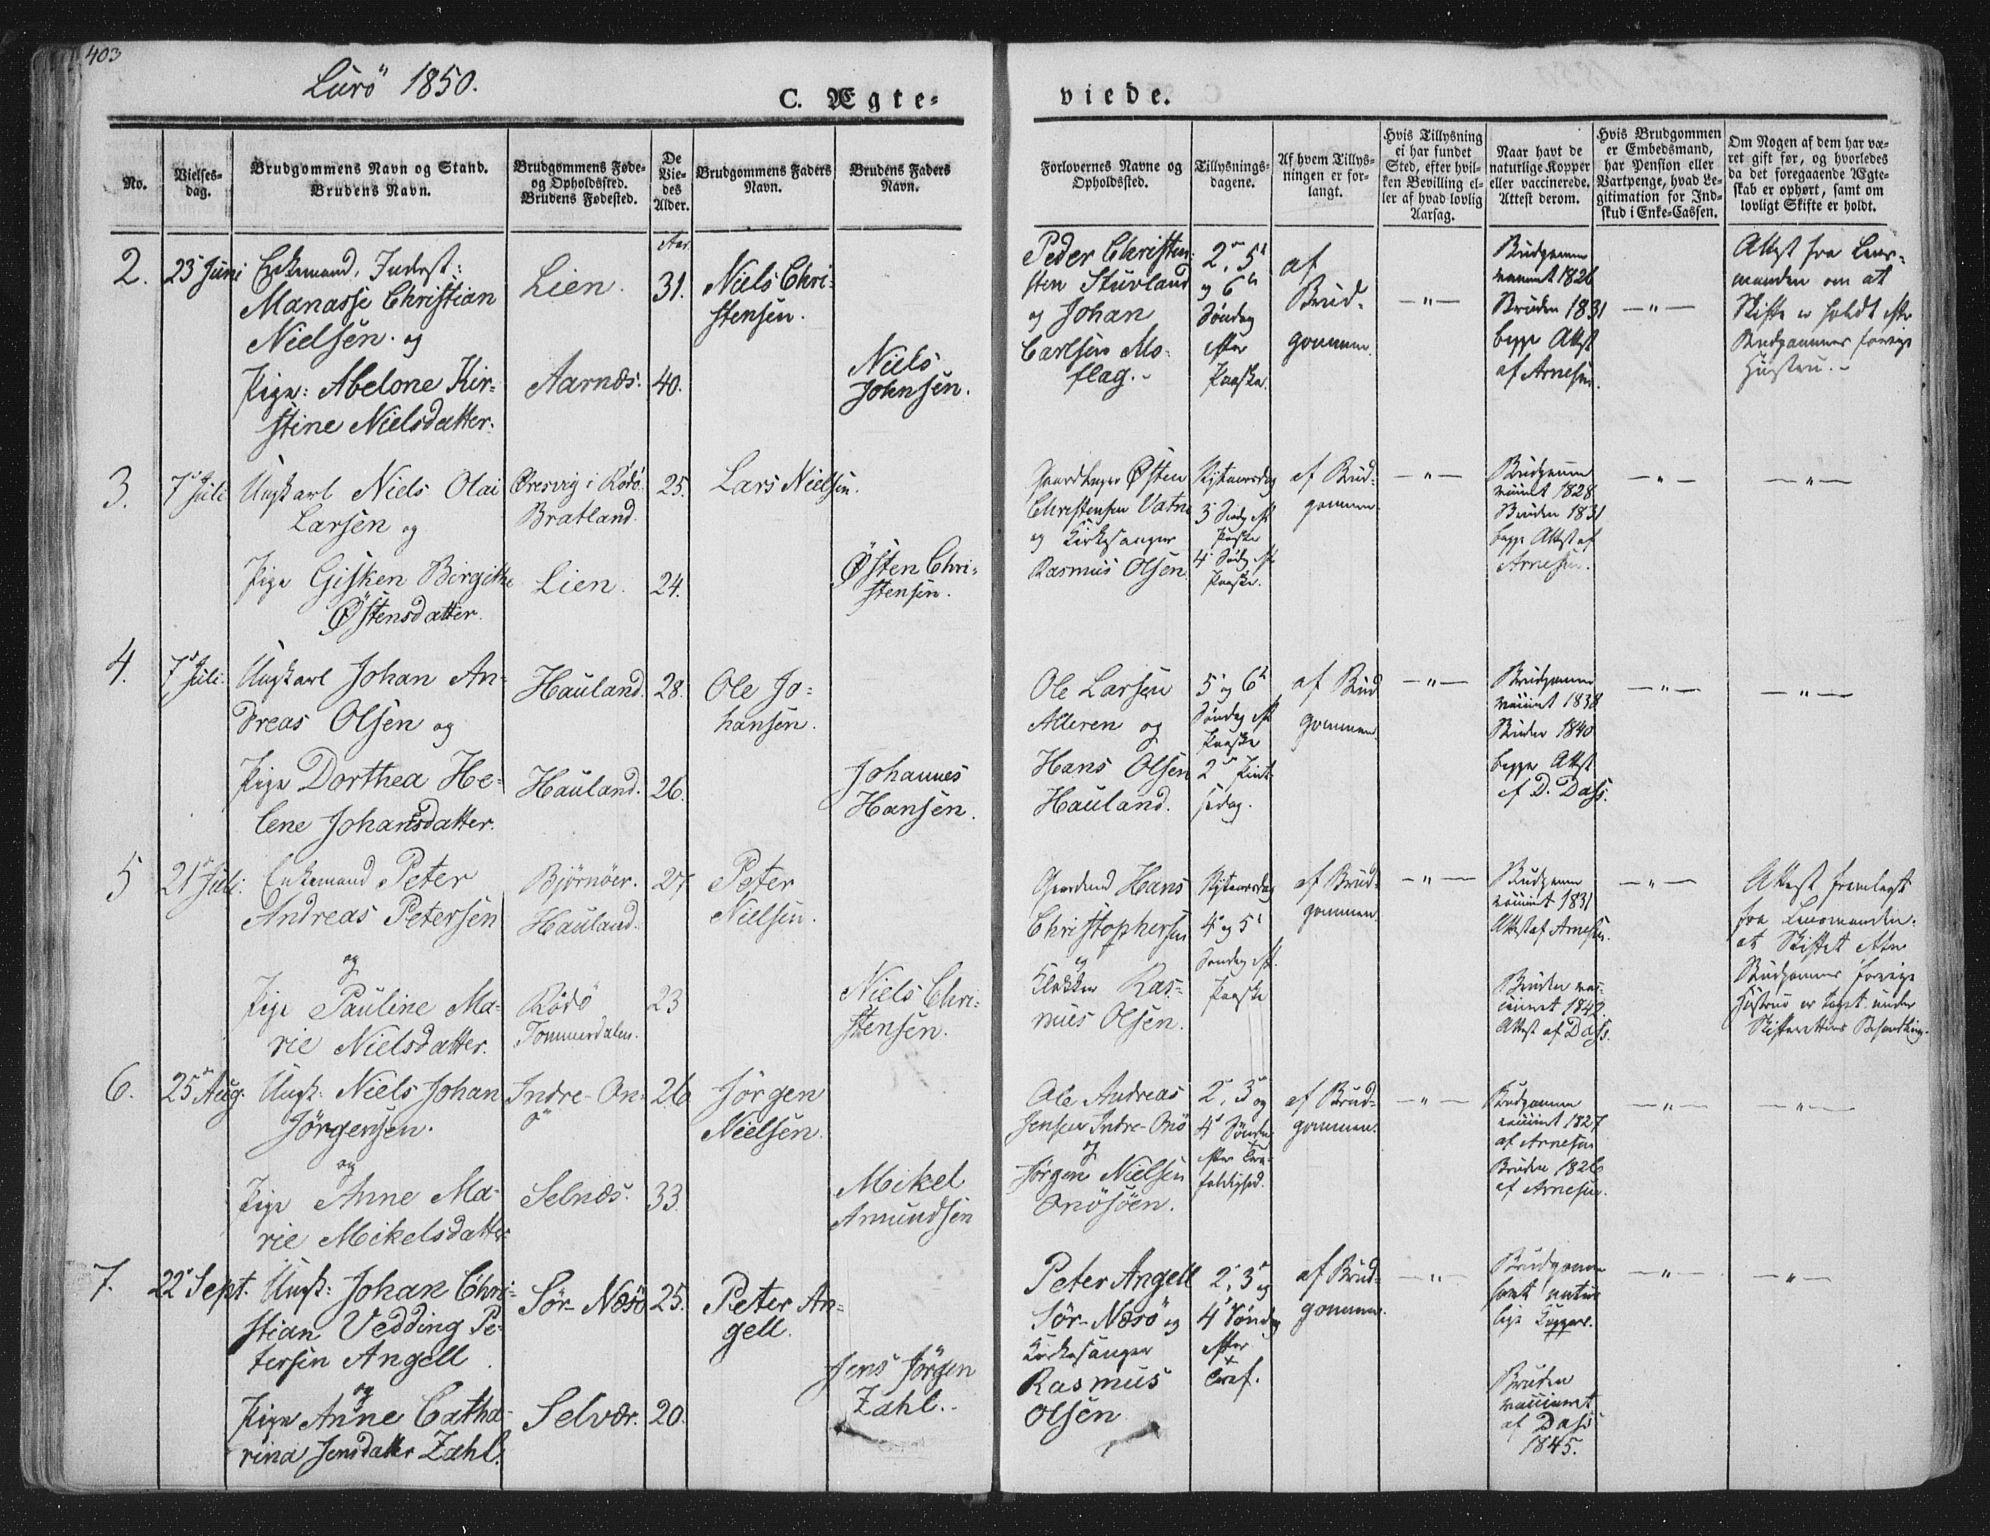 403
Lurö 1850.
C. Ægte-
viede.
No.
Vielses-
dag.
Brudgommens Navn og Stand.
Brudens Navn.
Brudgommens Føde-
og Opholdssted.
Brudens Fødested.
De
Vie-
des
Alder.
Brudgommens Faders
Navn.
Brudens Faders
Navn.
Forlovernes Navne og
Opholdssted.
Tillysnings-
dagene.
Af hvem Tillys-
ningen er for-
langt.
Hvis Tillysning
ei har fundet
Sted, efter hvil-
ken Bevilling el-
ler af hvad lovlig
Aarsag.
Naar havt de
naturlige Kopper
eller vaccinerede.
Attest derom.
Hvis Brudgommen
er Embedsmand,
har Pension eller
Vartpenge, hvad Le-
gitimation for Ind-
skud i Enke-Cassen.
Om Nogen af dem har væ-
ret gift før, og hvorledes
da det foregaaende Ægte-
skab er ophørt, samt om
lovligt Skifte er holdt.
2.
23 Juni
Enkemand, Inderst:
Manasse Christian
Nielsen. og
Pige: Abelone Kir-
stine Nielsdatter.
Lien.
Aarnæs.
Aar.
31.
40.
Niels Chri-
stensen.
Niels
Johnsen.
Peder Christen-
sten Stuvland
og Johan
Carlsen Mo-
flag.
2, 5t
og 6te
Søndag
efter
Paaske.
af
Brud-
gommen.
— " —
Brudgommen
vaccinert 1826
Bruden 1831
begge Attest
af Arnesen.
— " —
Attest fra Lens-
manden om at
Skifte er holdt efter
Brudgommens forrige
Hustru.
3.
7 Juli.
Ungkarl Niels Olai
Larsen og
Pige Gisken Birgithe
Østensdatter.
Øresvig i Rødö.
Bratland.
Lien.
25.
24.
Lars Nielsen.
Østen Chri-
stensen.
Gaardbruger Østen
Christensen Vatne
og Kirkesanger
Rasmus Olsen
Nytaarsdag
3 Søndg eft
Paaske
4 Søndg eft
Paaske.
af Brud-
gommen
— " —
Brudgommen
vaccinert 1828
Bruden 1831
begge Attest af
Arnesen.
— " —
— " —
4.
7 Juli.
Ungkarl Johan An-
dreas Olsen og
Pige Dorthea He-
lene Johansdatter.
Hauland.
Hauland.
28.
26.
Ole Jo-
hansen.
Johannes
Hansen.
Ole Larsen
Alteren og
Hans Olsen
Hauland.
5 og 6te
Søndag eft
Paaske
2 Pint-
sedag.
af Brud
gommen.
— " —
Brudgommen
vaccinert 1838
Bruden 1840
begge Attest
af D. Dass.
— " —
— " —
5
21 Juli.
Enkemand Peter
Andreas Petersen
og
Pige Pauline Ma-
rie Nielsdatter.
Bjørnöer.
Hauland.
Rödö
Tommerdalen.
27
23
Peter
Nielsen.
Niels Chri-
stensen.
Gaardmd Hans
Christophersen
og
Klokker Ras-
mus Olsen.
Nytaarsdag
4 og 5t
Søndag eft.
Paaske
af Brud-
gommen.
— " —
Brudgommen
vaccinert 1831
Attest af Arnesen.
Bruden vac-
cineret 1840
Attest af Dass.
— " —
Attest fremlagt
fra Lensmanden.
at Skiftet efter
Brudgommens forrige
Hustrue er taget under
Skifterettens Behandling.
6.
25 Aug.
Ungk: Niels Johan
Jörgensen.
og
Pige Anne Ma-
rie Mikelsdatter
Indre-On-
ö
Selnæs.
26
33.
Jörgen
Nielsen.
Mikel
Amundsen
Ole Andreas
Jensen Indre-Onö
og
Jörgen Nielsen
Onösöen.
2, 3 og
4 Søndg
efter Tre-
foldighed.
af Brud-
gommen.
— " —
Brudgommen
vaccinert 1827
af Arnesen
Bruden 1826
af Arnesen.
— " —
— " —
7.
22 Sept.
Ungk: Johan Chri-
stian Vedding Pe-
tersen Angell
og
Pige Anne Catha-
rina Jensdatter Zahl.
Sör-Næsö
Selvær.
25.
20.
Peter An-
gell.
Jens Jörgen
Zahl.
Peter Angell
Sör-Næsö og
Kirkesanger
Rasmus
Olsen
2, 3 og
4 Søndag
efter
Tref.
af Brud-
gommen.
— " —
Brudgommen
havt natur
lige Kopper.
Bruden
vaccineret
af Dass
1845.
— " —
— " —